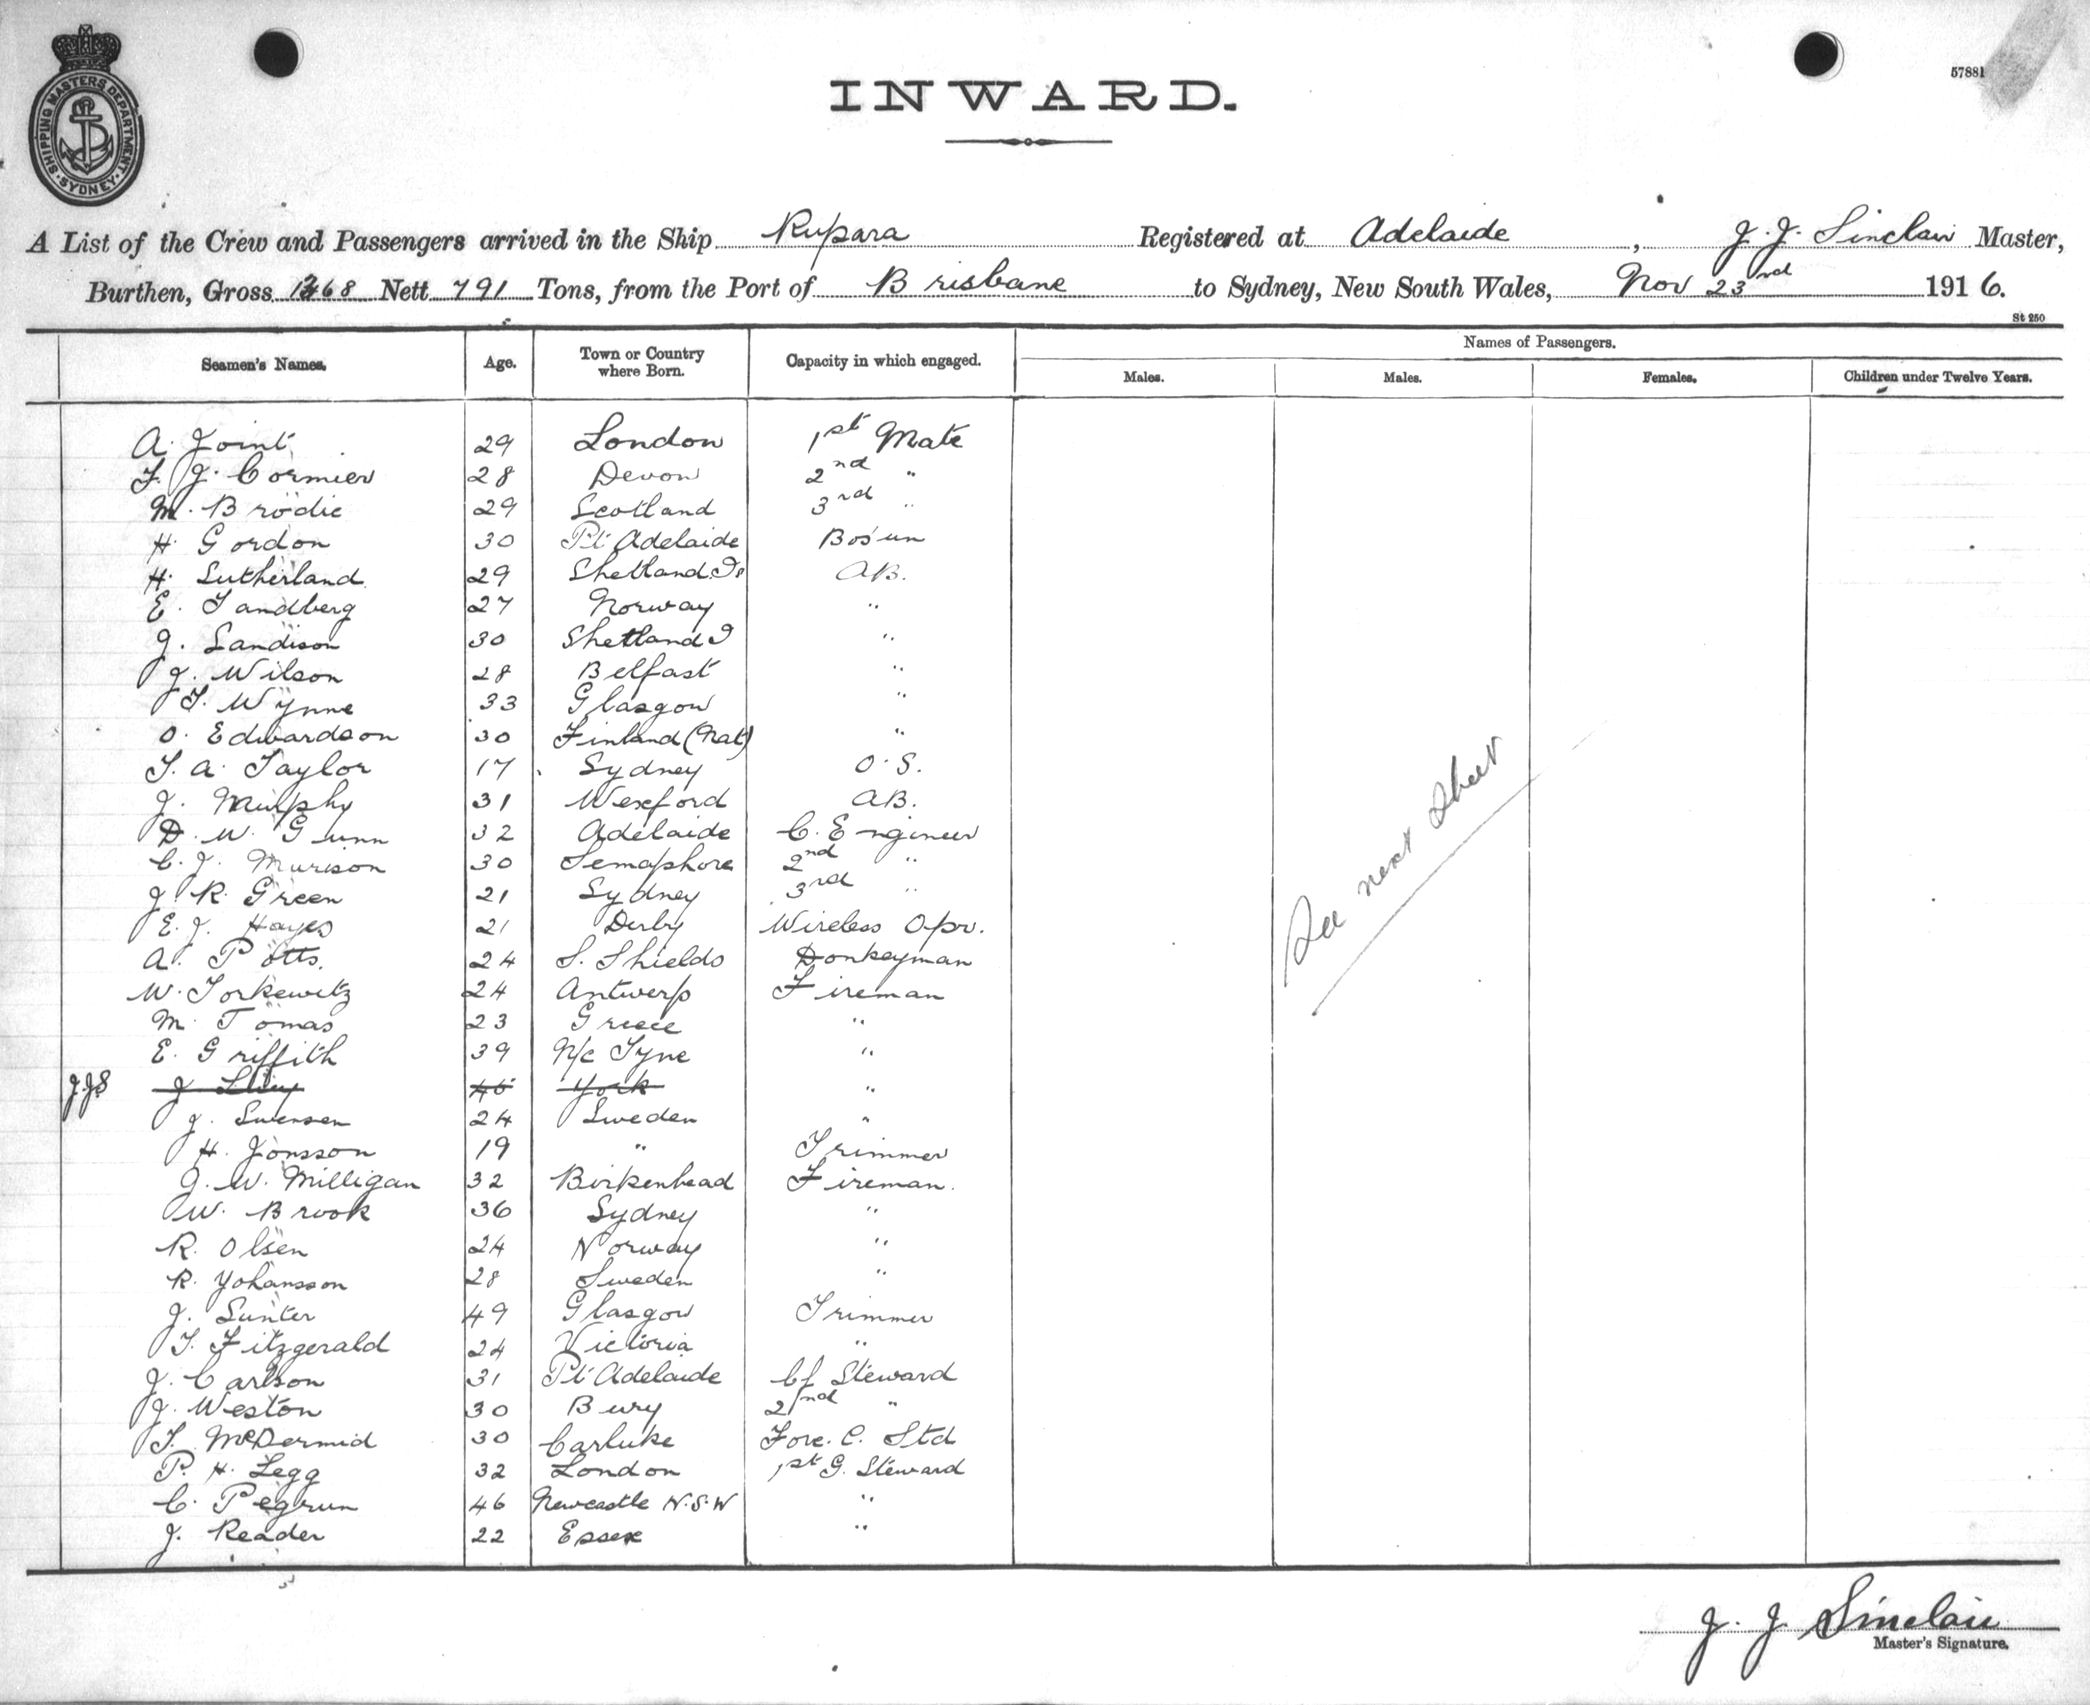 57881
SHIPPING MASTERS DEPARTMENT · SYDNEY ·
INWARD.
A List of the Crew and Passengers arrived in the Ship Rupara Registered at Adelaide, J. J. Sinclair Master,
Burthen, Gross 1368 Nett 791 Tons, from the Port of Brisbane to Sydney, New South Wales, Nov 23rd 1916.
St 250
Seamen's Names. Age. Town or Country where Born. Capacity in which engaged. Names of Passengers.
Males. Males. Females. Children under Twelve Years.
A. Joint 29 London 1st Mate
F. J. Cormier 28 Devon 2nd "
M. Brodie 29 Scotland 3rd "
H. Gordon 30 Pt Adelaide Bos'un
H. Sutherland 29 Shetland Is AB.
E. Sandberg 27 Norway "
J. Sandison 30 Shetland I "
J. Wilson 28 Belfast "
T. Wynne 33 Glasgow "
O. Edwardson 30 Finland (Nat) "
T. A. Taylor 17 Sydney O.S.
J. Murphy 31 Wexford AB.
D. W. Gunn 32 Adelaide C. Engineer
C. J. Murison 30 Semaphore 2nd "
J. R. Green 21 Sydney 3rd "
E. J. Hayes 21 Derby Wireless Opr.
A. Potts. 24 S. Shields Donkeyman
W. Torkewitz 24 Antwerp Fireman
M. Tomas 23 Greece "
E. Griffith 39 N/c Tyne "
J.J.S J York "
J. Swensen 24 Sweden "
H. Jonsson 19 " Trimmer
J. W. Milligan 32 Birkenhead Fireman.
W. Brook 36 Sydney "
R. Olsen 24 Norway "
R. Yohansson 28 Sweden "
J. Sunter 49 Glasgow Trimmer
T. Fitzgerald 24 Victoria "
J. Carlson 31 Pt Adelaide Cf Steward
J. Weston 30 Bury 2nd "
T. McDermid 30 Carluke Fore. C. Std
P. H. Legg 32 London 1st G. Steward
C. Pegrum 46 Newcastle N.S.W "
J. Reader 22 Essex "
See next sheet
J. J. Sinclair
Master's Signature.